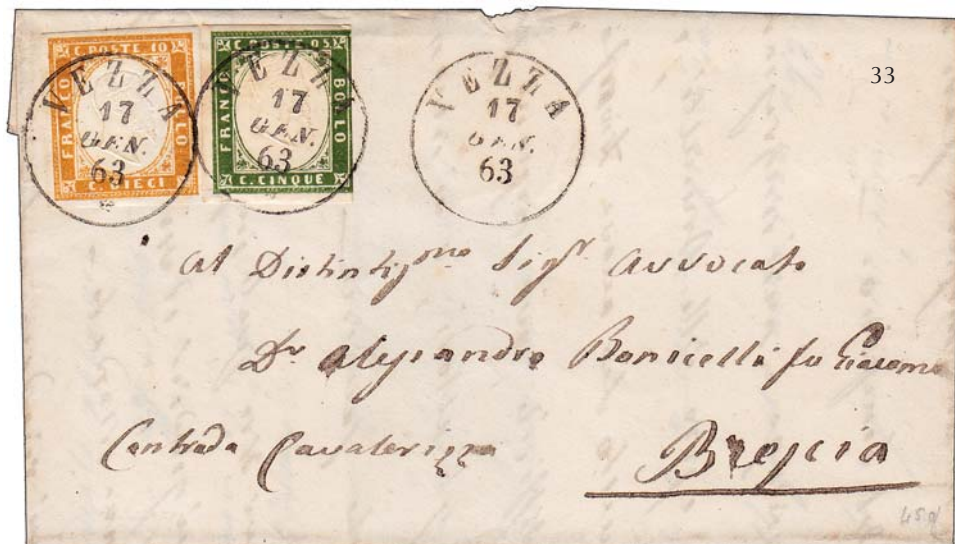 C. POSTE 10
FRANCO BOLLO
C. DIECI
C. POSTE 05
FRANCO BOLLO
C. CINQUE
VEZZA
17
GEN.
63
VEZZA
17
GEN.
63
VEZZA
17
GEN.
63
33
Al Distintissmo Sigr Avvocato
Dr Alessandro Bonicelli fu Giacomo
Contrada Cavalerizza
Brescia